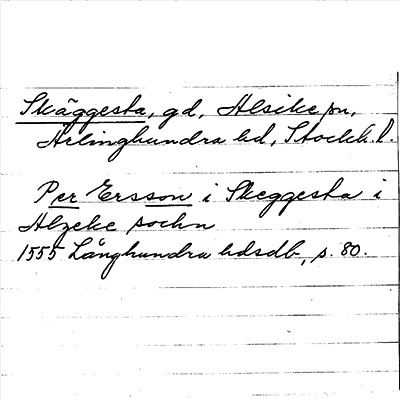 Skäggesta, gd, Alsike sn,
Ärlinghundra hd, Stockh. l.
Per Ersson i Skeggesta i
Alzeke sochn
1555 Långhundra hdsdb, s. 80.